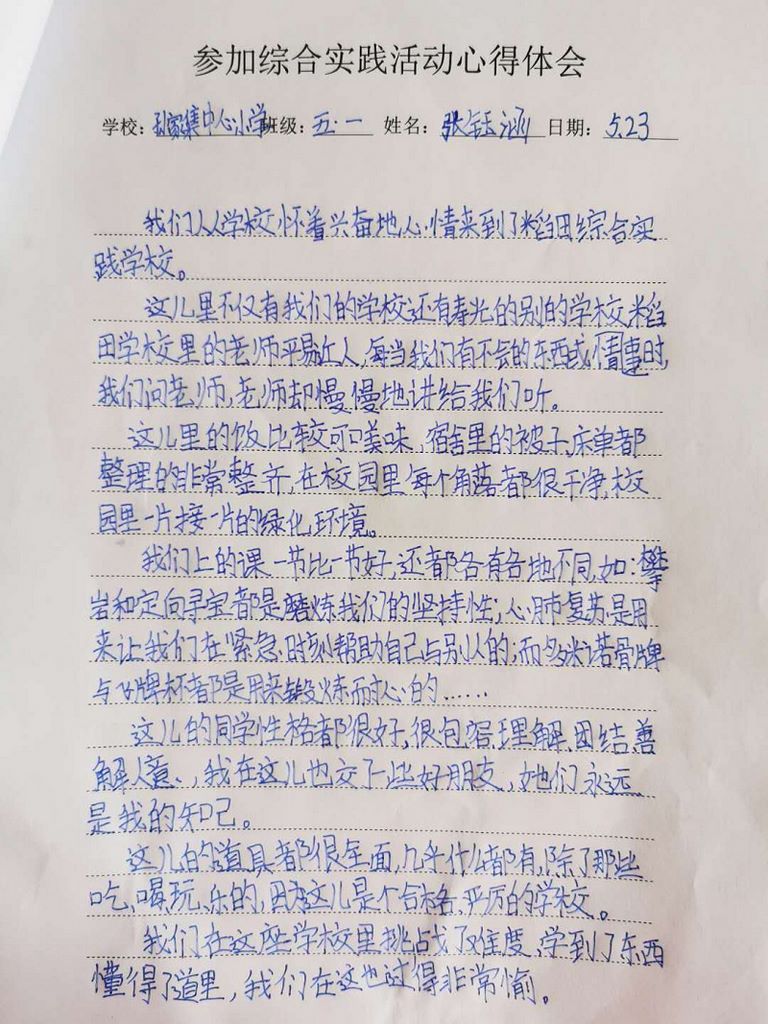 参加综合实践活动心得体会
学校：孙家集中心小学 班级：五·一 姓名：张钰涵 日期：5.23
我们从学校怀着兴奋地心情来到了稻田综合实
践学校。
这儿里不仅有我们的学校还有寿光的别的学校,稻
田学校里的老师平易近人,每当我们有不会的东西或情事时,
我们问老师,老师却慢慢地讲给我们听。
这儿里的饭比较可口美味,宿舍里的被子,床单都
整理的非常整齐,在校园里每个角落都很干净,校
园里一片接一片的绿化环境。
我们上的课一节比一节好,还都各有各地不同,如:攀
岩和定向寻宝都是磨炼我们的坚持性;心肺复苏是用
来让我们在紧急时刻帮助自己与别人的;而多米诺骨牌
与飞牌杯都是用来锻炼耐心的……
这儿的同学性格都很好,很包容、理解、团结、善
解人意、,我在这儿也交了些好朋友,她们永远
是我的知己。
这儿的道具都很全面,几乎什么都有,除了那些
吃、喝、玩、乐的,因为这儿是个合格、严厉的学校。
我们在这座学校里挑战了难度、学到了东西
懂得了道里,我们在这也过得非常愉。